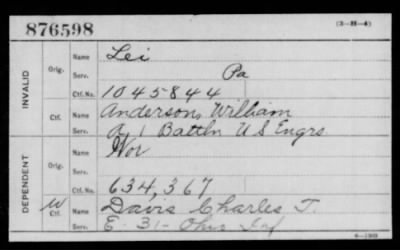 876598
(3-H-4)
INVALID
Orig.
Name Lei
Serv. Pa
Ctf. No. 1045844
Ctf.
Name Anderson, William
Serv. A, 1 Battln U S Engrs
DEPENDENT
Orig.
Name Nov
Serv.
Ctf. No. 634,367
W
Ctf.
Name Davis Charles T.
Serv. E- 31- Ohio Inf
6-1903